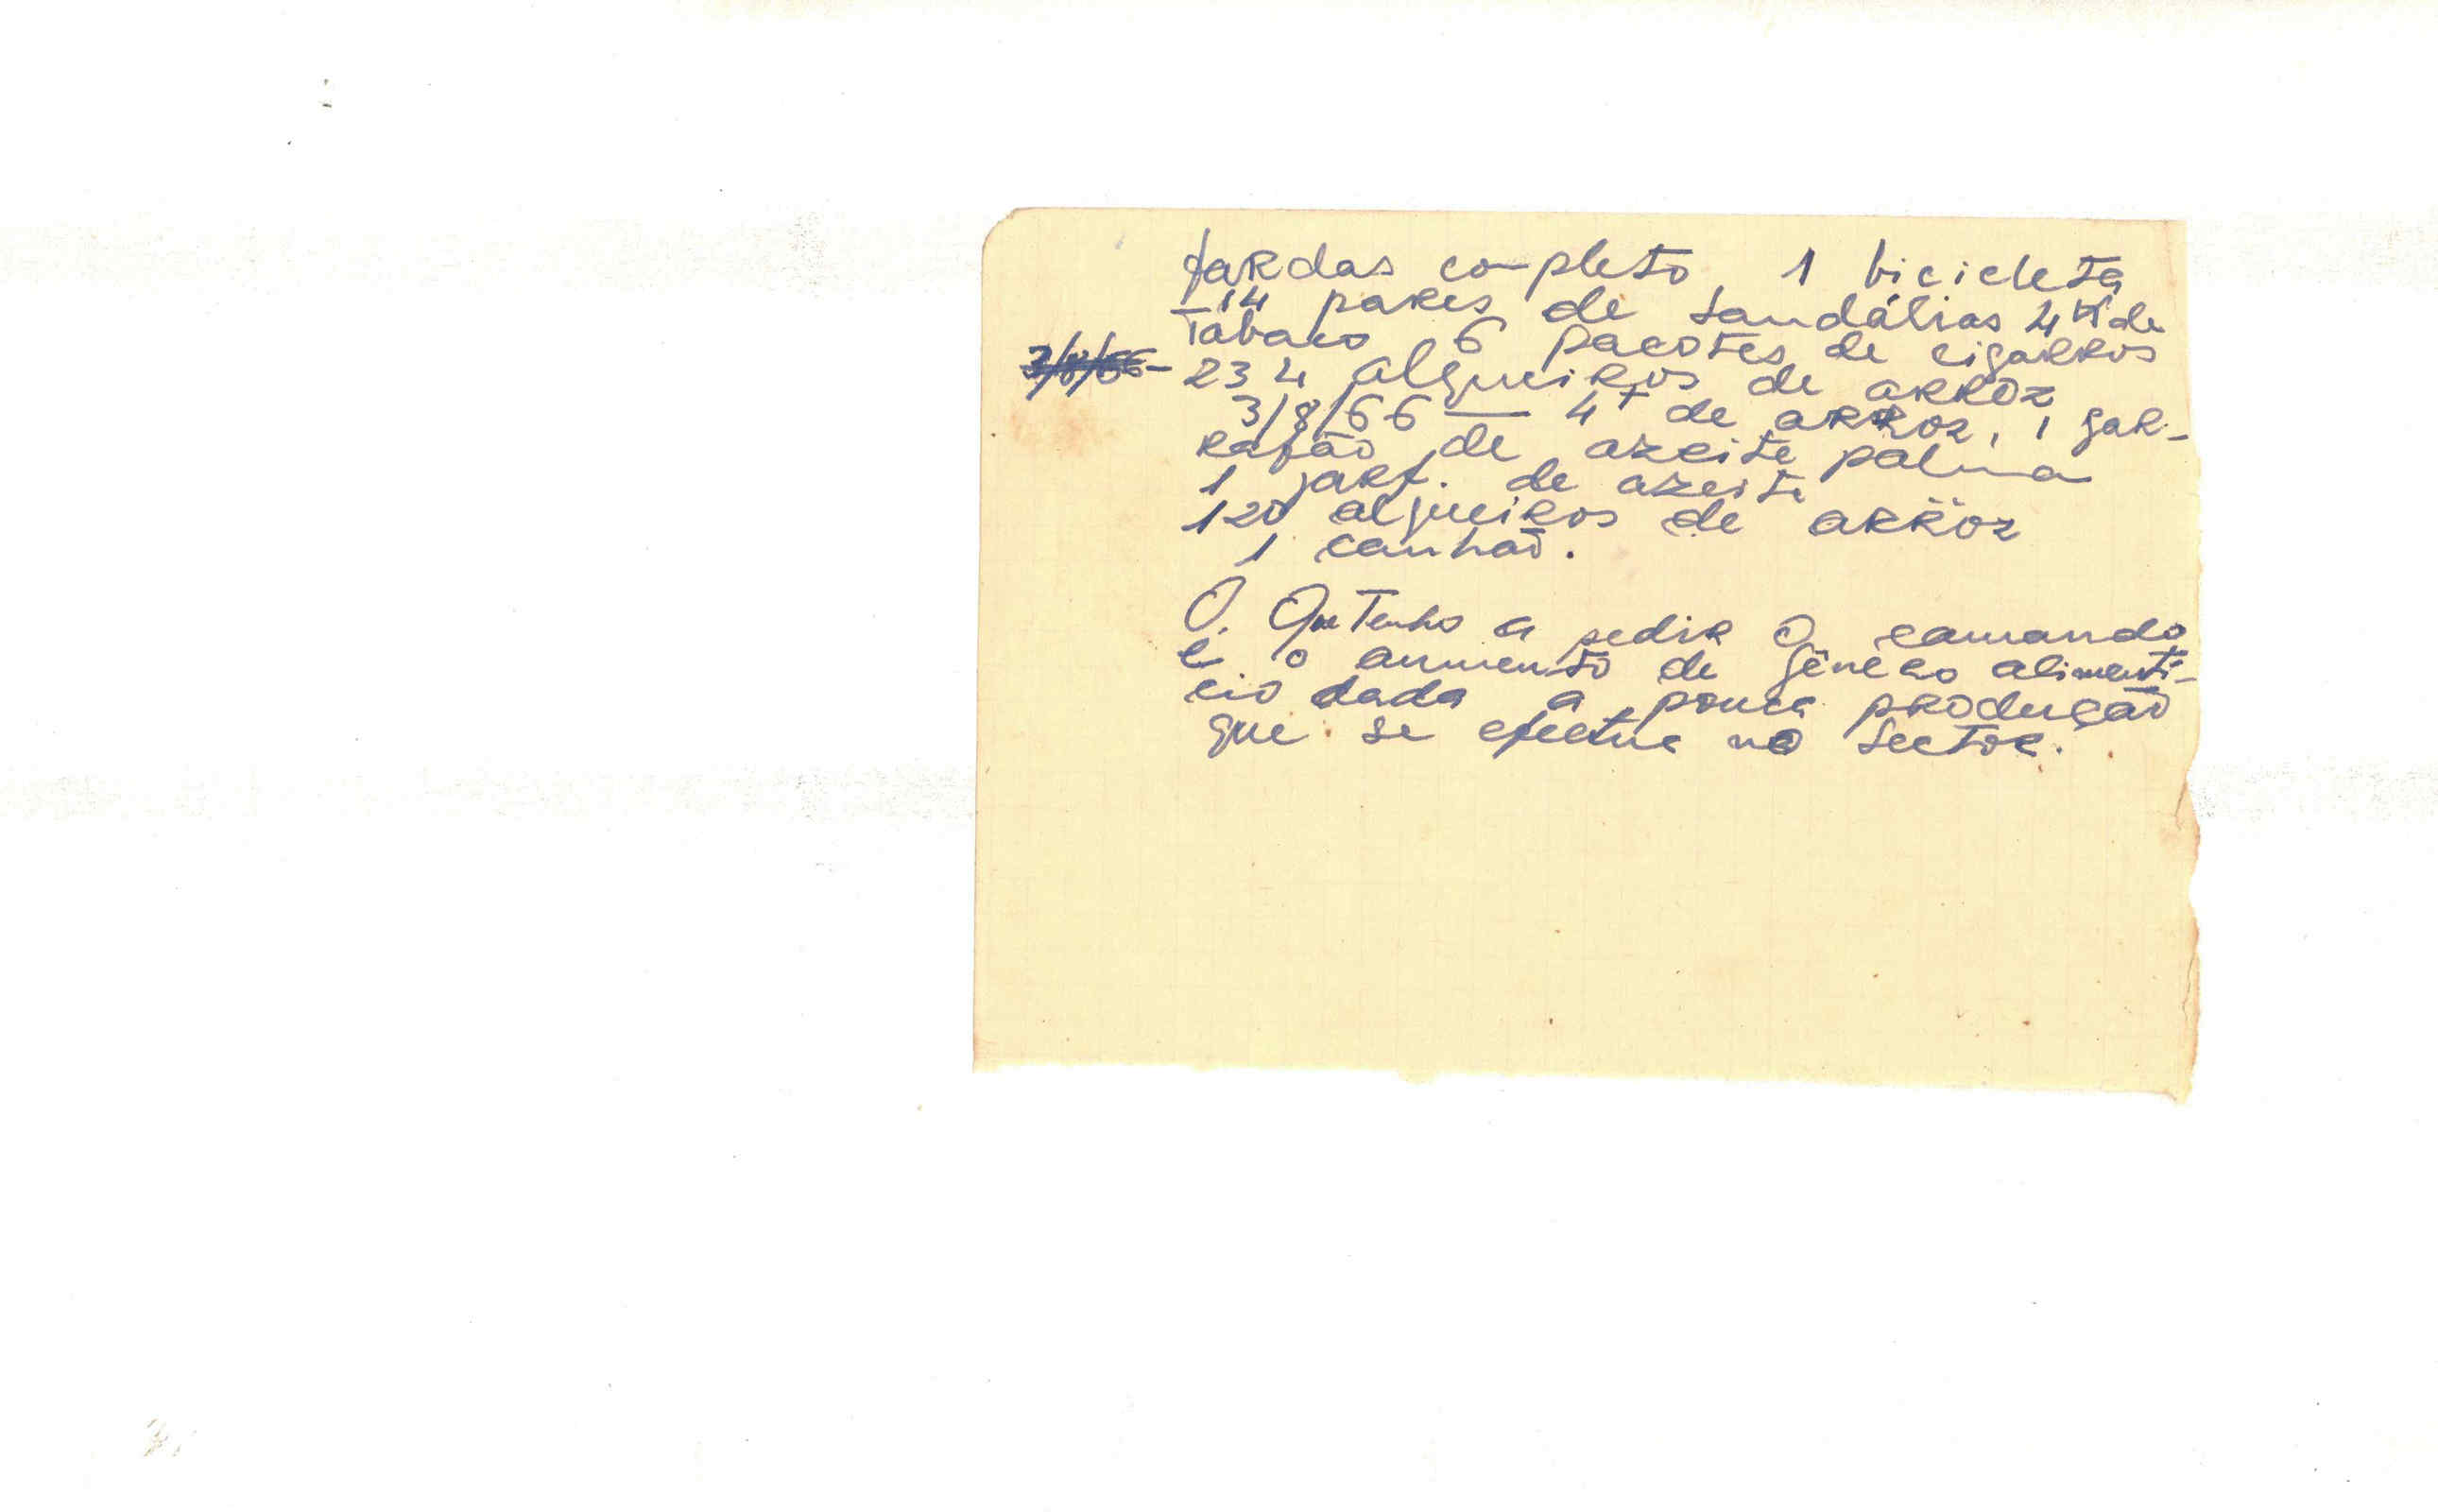 fardas completo 1 bicicleta
14 pares de sandálias 4 K de
Tabaco 6 pacotes de cigarros
3/8/66 - 234 alqueiros de arroz
3/8/66 — 4 T de arroz, 1 gar-
rafão de azeite palma
1 garf. de azeite
120 alqueiros de arroz
1 canhão.
O Que Tenho a pedir O camando
é o aumento de género alimentí-
cio dada a pouca produção
que se efectua no Sector.